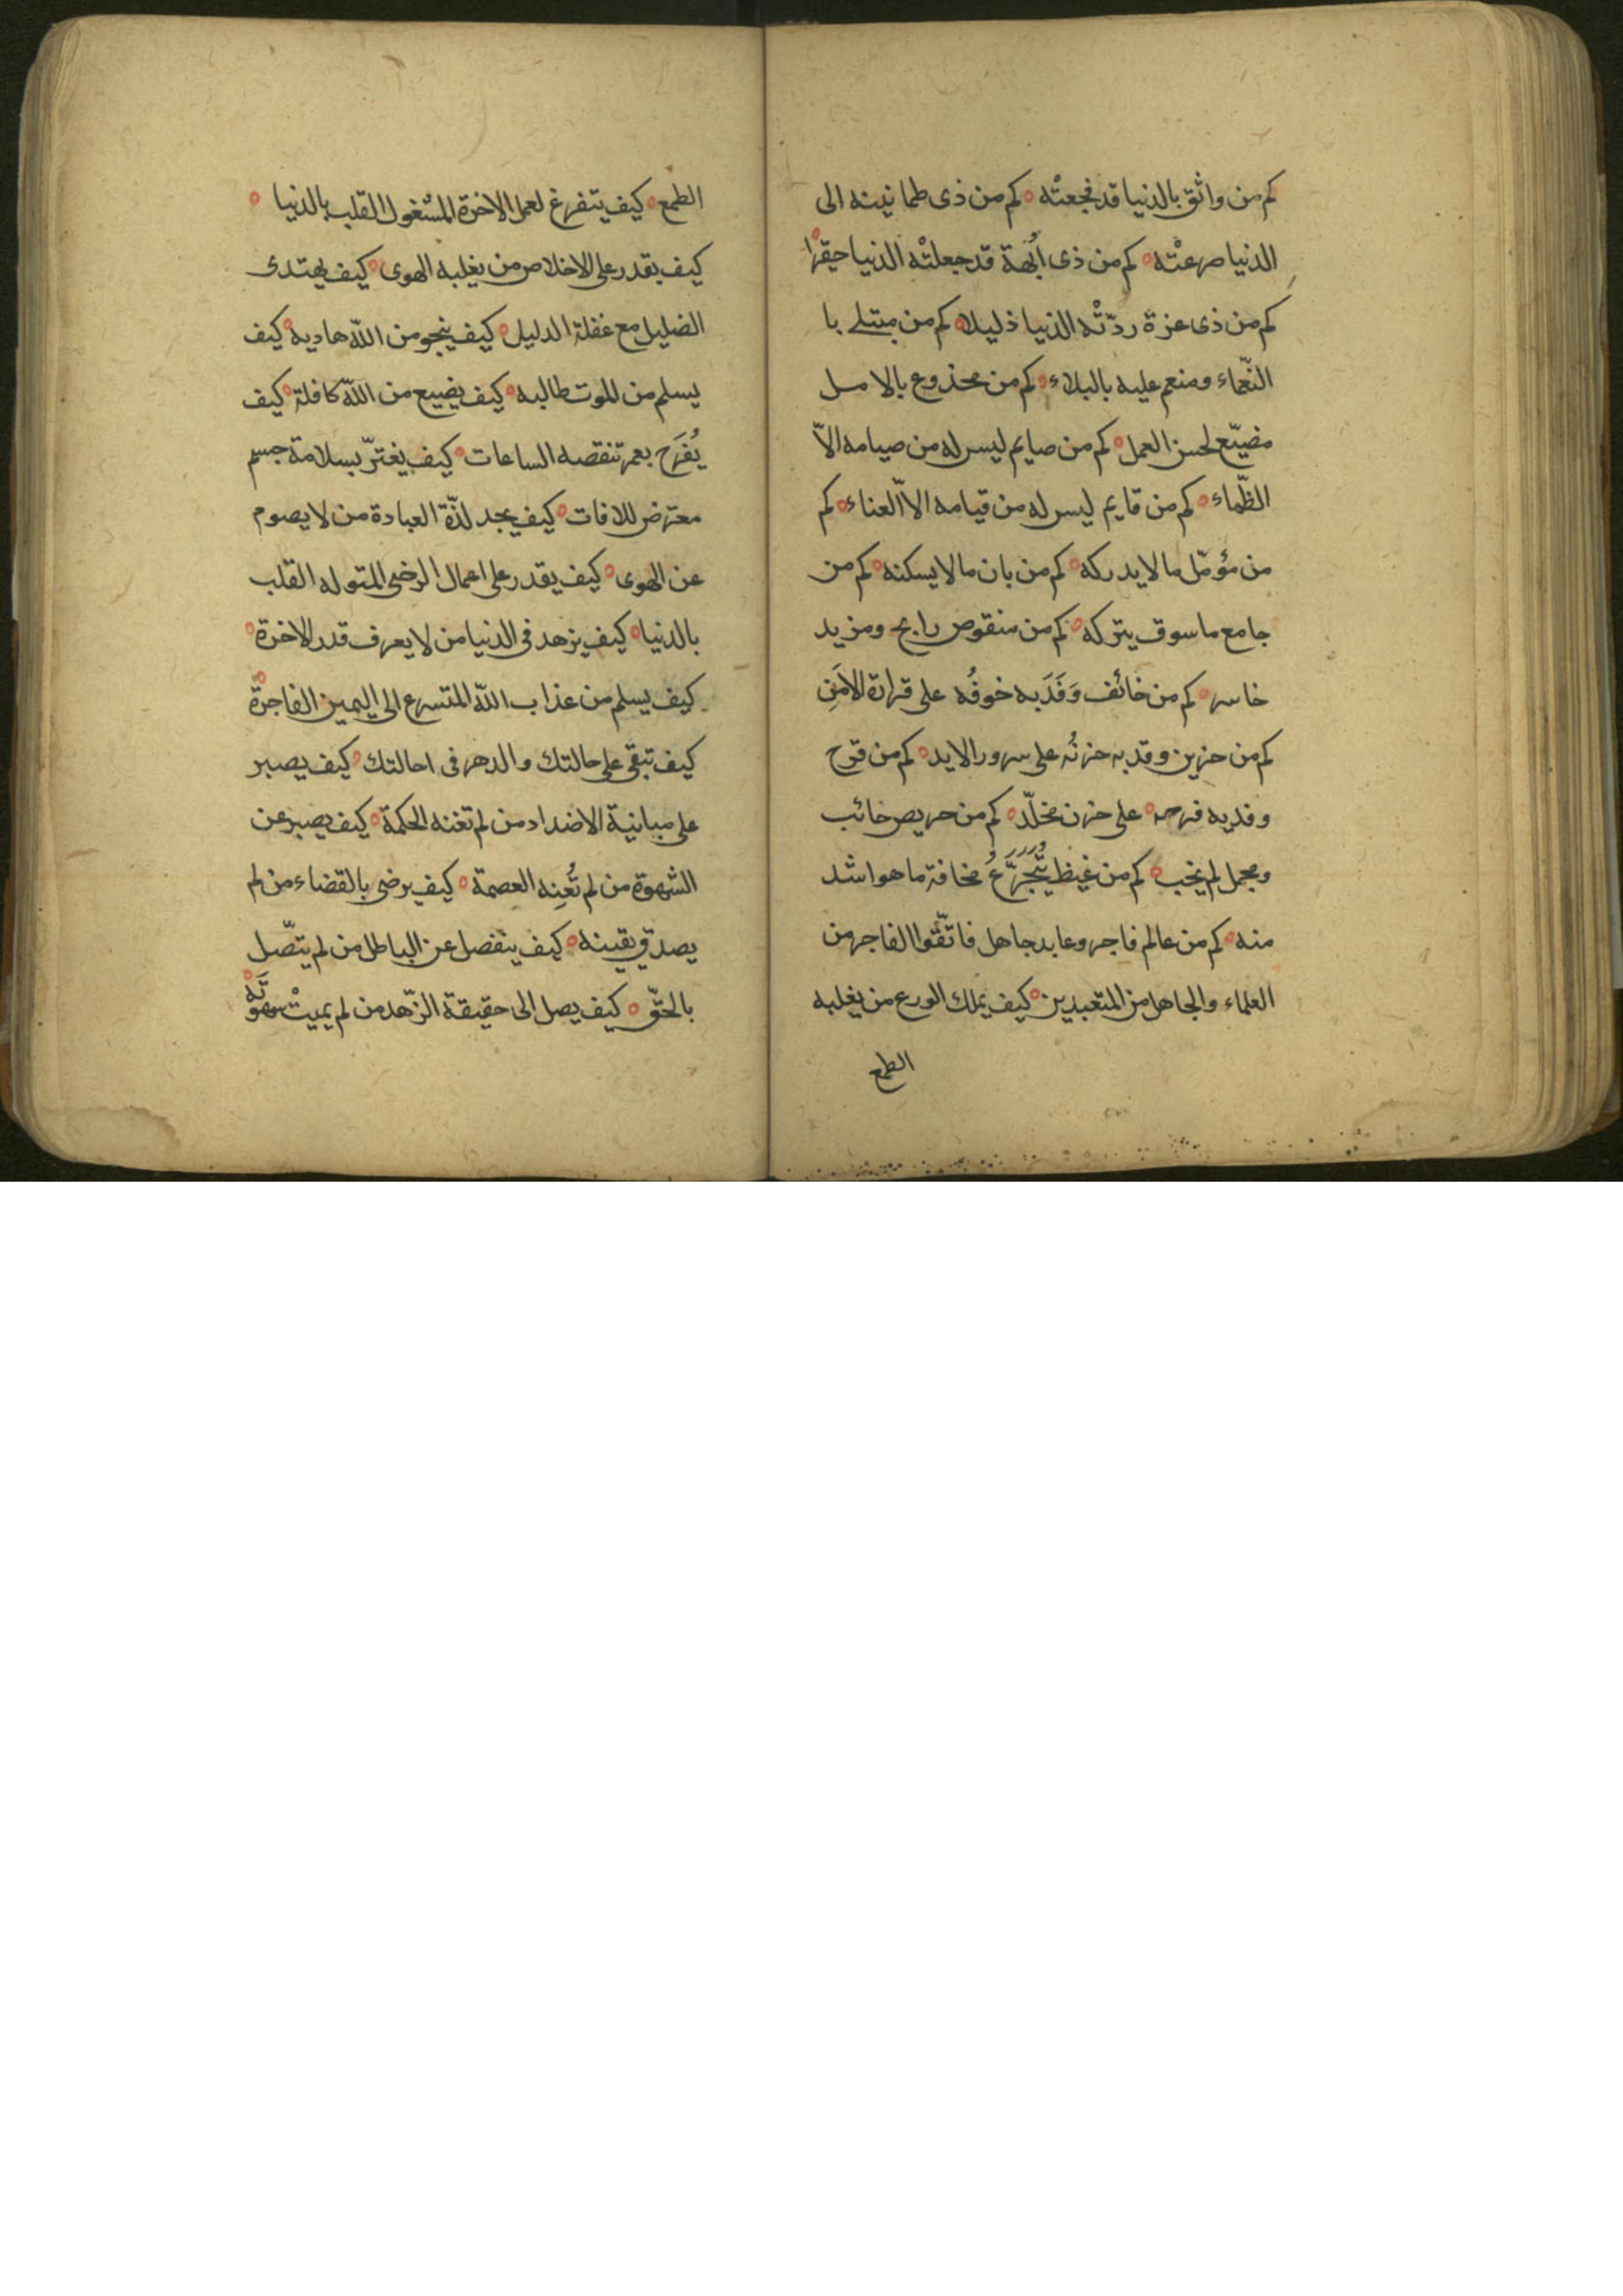 كم من واثق بالدنيا قد فجعتْه ۰ كم من ذى طمانينه الى
الدنيا صرعتْه ۰ كم من ذى اُبّهة قد جعلتْه الدنيا حقيرًا
كم من ذى عزة ردّتْه الدنيا ذليلا ۰ كم من مبتلى با
النّعماء ومنعم عليه بالبلاء ۰ كم من مخدوع بالامل
مضيّع لحسن العمل ۰ كم من صايم ليس له من صيامه الاّ
الظّماء ۰ كم من قايم ليس له من قيامه الا العناء ۰ كم
من مؤمّل ما لا يدركه ۰ كم من بان ما لا يسكنه ۰ كم من
جامع ما سوف يتركه ۰ كم من منقوص رابح ومزيد
خاسر ۰ كم من خائف وَفَدَ به خوفُه على قرارة الامَنِ
كم من حزين وفد به حزنُه على سرور الابد ۰ كم من فرح
وفد به فرحه ۰ على حزن مخلّد ۰ كم من حريص خائب
ومجمل لم يخب ۰ كم من غيظ يتّجرّعُ مخافة ما هو اشد
منه ۰ كم من عالم فاجر وعابد جاهل فاتّقوا الفاجر من
العلماء والجاهل من المتعبدين ۰ كيف يملك الورع من يغلبه
الطمع
الطمع ۰ كيف يتفرغ لعمل الاخرة المشغول القلب بالدنيا ۰
كيف يقدر على الاخلاص من يغلبه الهوى ۰ كيف يهتدى
الضليل مع غفلة الدليل ۰ كيف ينجو من اللّه هاديه ۰ كيف
يسلم من للموت طالبه ۰ كيف يضيع من اللّه كافلة ۰ كيف
يُفرَح بعمر تنقصه الساعات ۰ كيف يغترّ بسلامة جسم
معترض للافات ۰ كيف يجد لذّة العبادة من لا يصوم
عن الهوى ۰ كيف يقدر على اعمال الرضى المتوله القلب
بالدنيا ۰ كيف يزهد فى الدنيا من لا يعرف قدر الاخرة ۰
كيف يسلم من عذاب اللّه المتسرع الى اليمين الفاجرة ۰
كيف تبقى على حالتك والدهر فى احالتك ۰ كيف يصبر
على مباينة الاضداد من لم تغنه الحكمة ۰ كيف يصبر عن
الشهوة من لم تُعِنه العصمة ۰ كيف يرضى بالقضاء من لم
يصدق يقينه ۰ كيف ينفصل عن الباطل من لم يتّصل
بالحقّ ۰ كيف يصل الى حقيقة الزّهد من لم يميتْ شهوتَه ۰